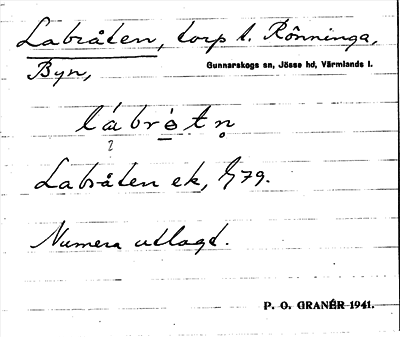 Labråten, torp t. Rönninga,
Byn,
Gunnarskogs sn, Jösse hd, Värmlands l.
Labråten ek, G79.
Numera utlagd.
P. O. GRANÉR 1941.